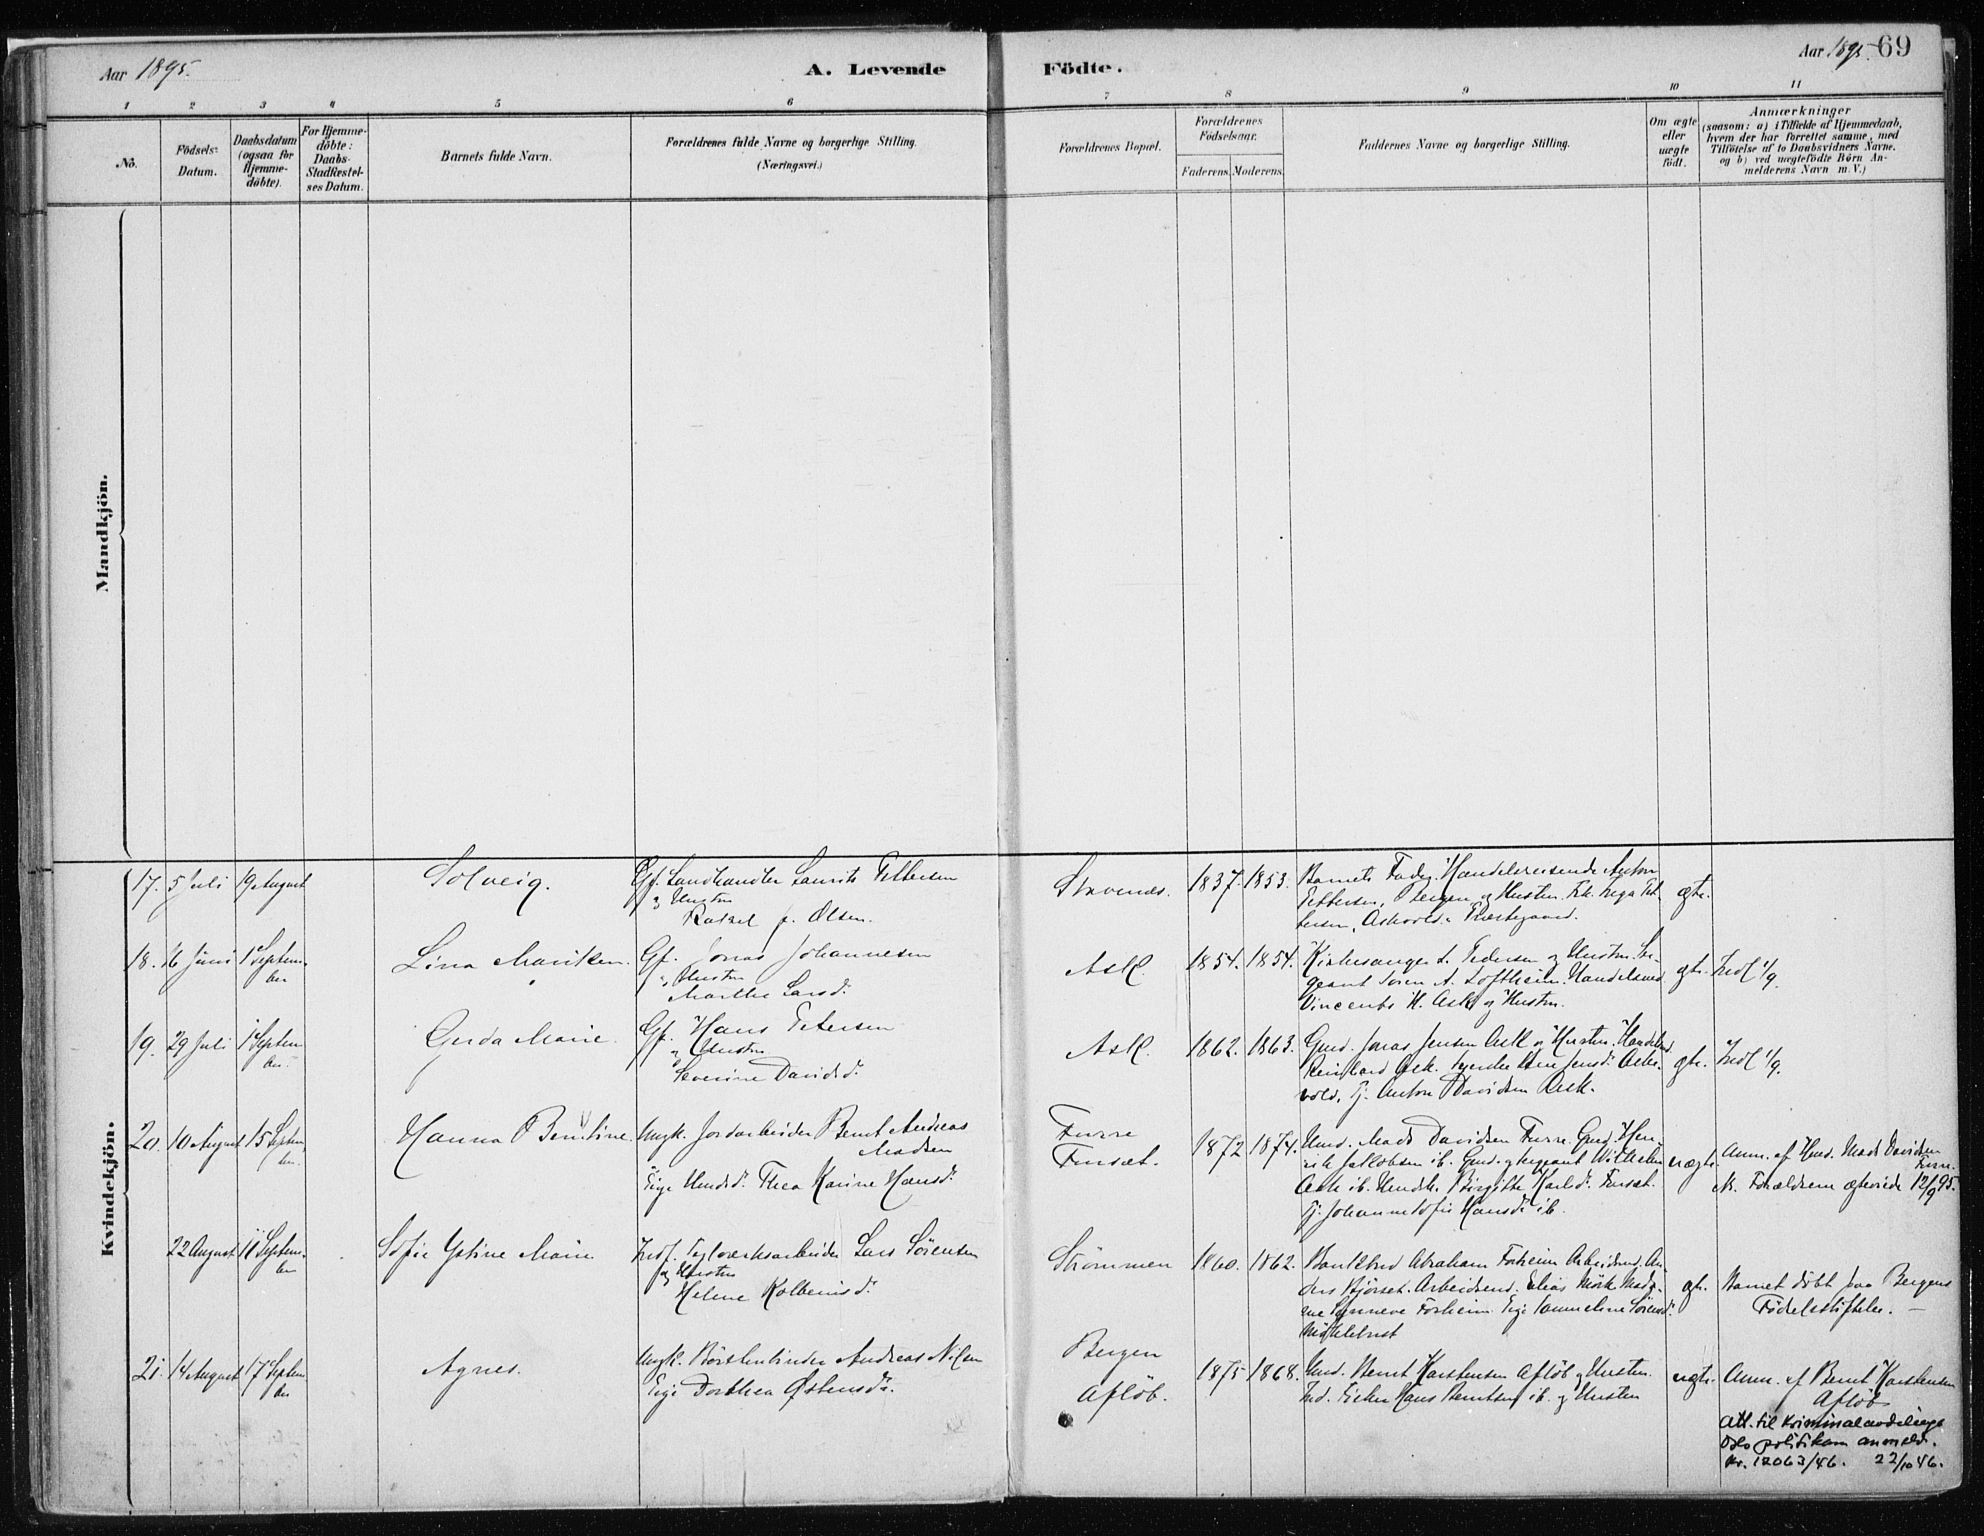 Aar 1895.
A. Levende Födte.
Aar 1895. 69
1 2 3 4 5 6 7 8 9 10 11
No.
Födsels-
Datum.
Daabsdatum
(ogsaa for
Hjemme-
döbte).
For Hjemme-
döbte:
Daabs-
Stadfæstel-
ses Datum.
Barnets fulde Navn.
Forældrenes fulde Navne og borgerlige Stilling.
(Næringsvei.)
Forældrenes Bopæl.
Forældrenes
Födselsaar.
Faderens. Moderens.
Faddernes Navne og borgerlige Stilling.
Om ægte
eller
uægte
födt.
Anmærkninger
(saasom: a) i Tilfælde af Hjemmedaab,
hvem der har forrettet samme, med
Tilföielse af to Daabsvidners Navne.
og b) ved uægtefödte Börn An-
melderens Navn m. V.)
Mandkjön.
Kvindekjön.
17. 5 Juli 19 August Solveig.
Gf. Landhandler Laurits Pettersen
og Hustru
Rakel f. Olsen.
Stavenes. 1837. 1853.
Barnets Fader. Handelsreisende Anton
Pettersen, Bergen og Hustru. Frk. Inga Pet-
tersen, Askvold.
ægte.
18. 16 Juni 1 Septem-
ber
Lina Maritken.
Gf. Jonas Johannesen
og Hustru
Marthe Larsd.
Ask. 1854. 1854.
Kirkesanger L. Pedersen og Hustru. Ser-
geant Sören A. Loftheim. Handelsmd
Vincents H. Ask og Hustru.
ægte. Indl 1/9.
19. 29 Juli 1 Septem
ber.
Gerda Marie.
Gf. Hans Petersen
og Hustru
Severine Davidsd.
Ask. 1862. 1863.
Gmd. Jonas Jensen Ask og Hustru. Handelsmd.
Reinhard Ask.
vold. Tj. Anton Davidsen Ask.
ægte. Indl 1/9.
20. 10 August 15 Septem-
ber.
Hanna Berntine.
Ungk. Jordarbeider Bernt Andreas
Madsen
Pige Thea Karine Hansd.
Furre
Fureset.
1872 1874.
Hmd. Mads Davidsen Furre. Gmd. Hen-
rik Jakobsen ib. Gmd. og Sergeant Wilhelm
Ask ib. Birgitte Karlsd. Furset.
Tj. Johanne Sofie Hansd. ib.
uægte.
Anm. af Hmd. Mads Davidsen
Furre.
N. Forældrene ægteviede 12/9 95.
22 August 11 Septem-
ber
Sofie Ystine Marie
Indf. Teglværksarbeider Lars Sörensen
og Hustru
Helene Kolbeinsd.
Strömmen 1860. 1862.
Abraham Forheim. Arbeidsmd. An-
ders Björset. Arbeidsmd. Elias Mörk.
Synneve Forheim. Pige Sörensd.
Myklebust
ægte.
Barnet döbt paa Bergens
Födselsstiftelse. —
21. 14 August 17 Septem
ber
Agnes.
Ungk. Börstenbinder Andreas Nilsen
Pige Dorthea Østensd.
Bergen
Aflöb.
1875 1868.
Hmd. Bernt Karstensen Aflöb og Hustru.
Ind. Fisker Hans Berntsen ib. og Hustru
uægte.
Anm. af Bernt Karstensen
Aflöb
Att. til Kriminalavdelinga
Oslo politikam. anmeld.
Nr. 12063/46. 22/10 46.